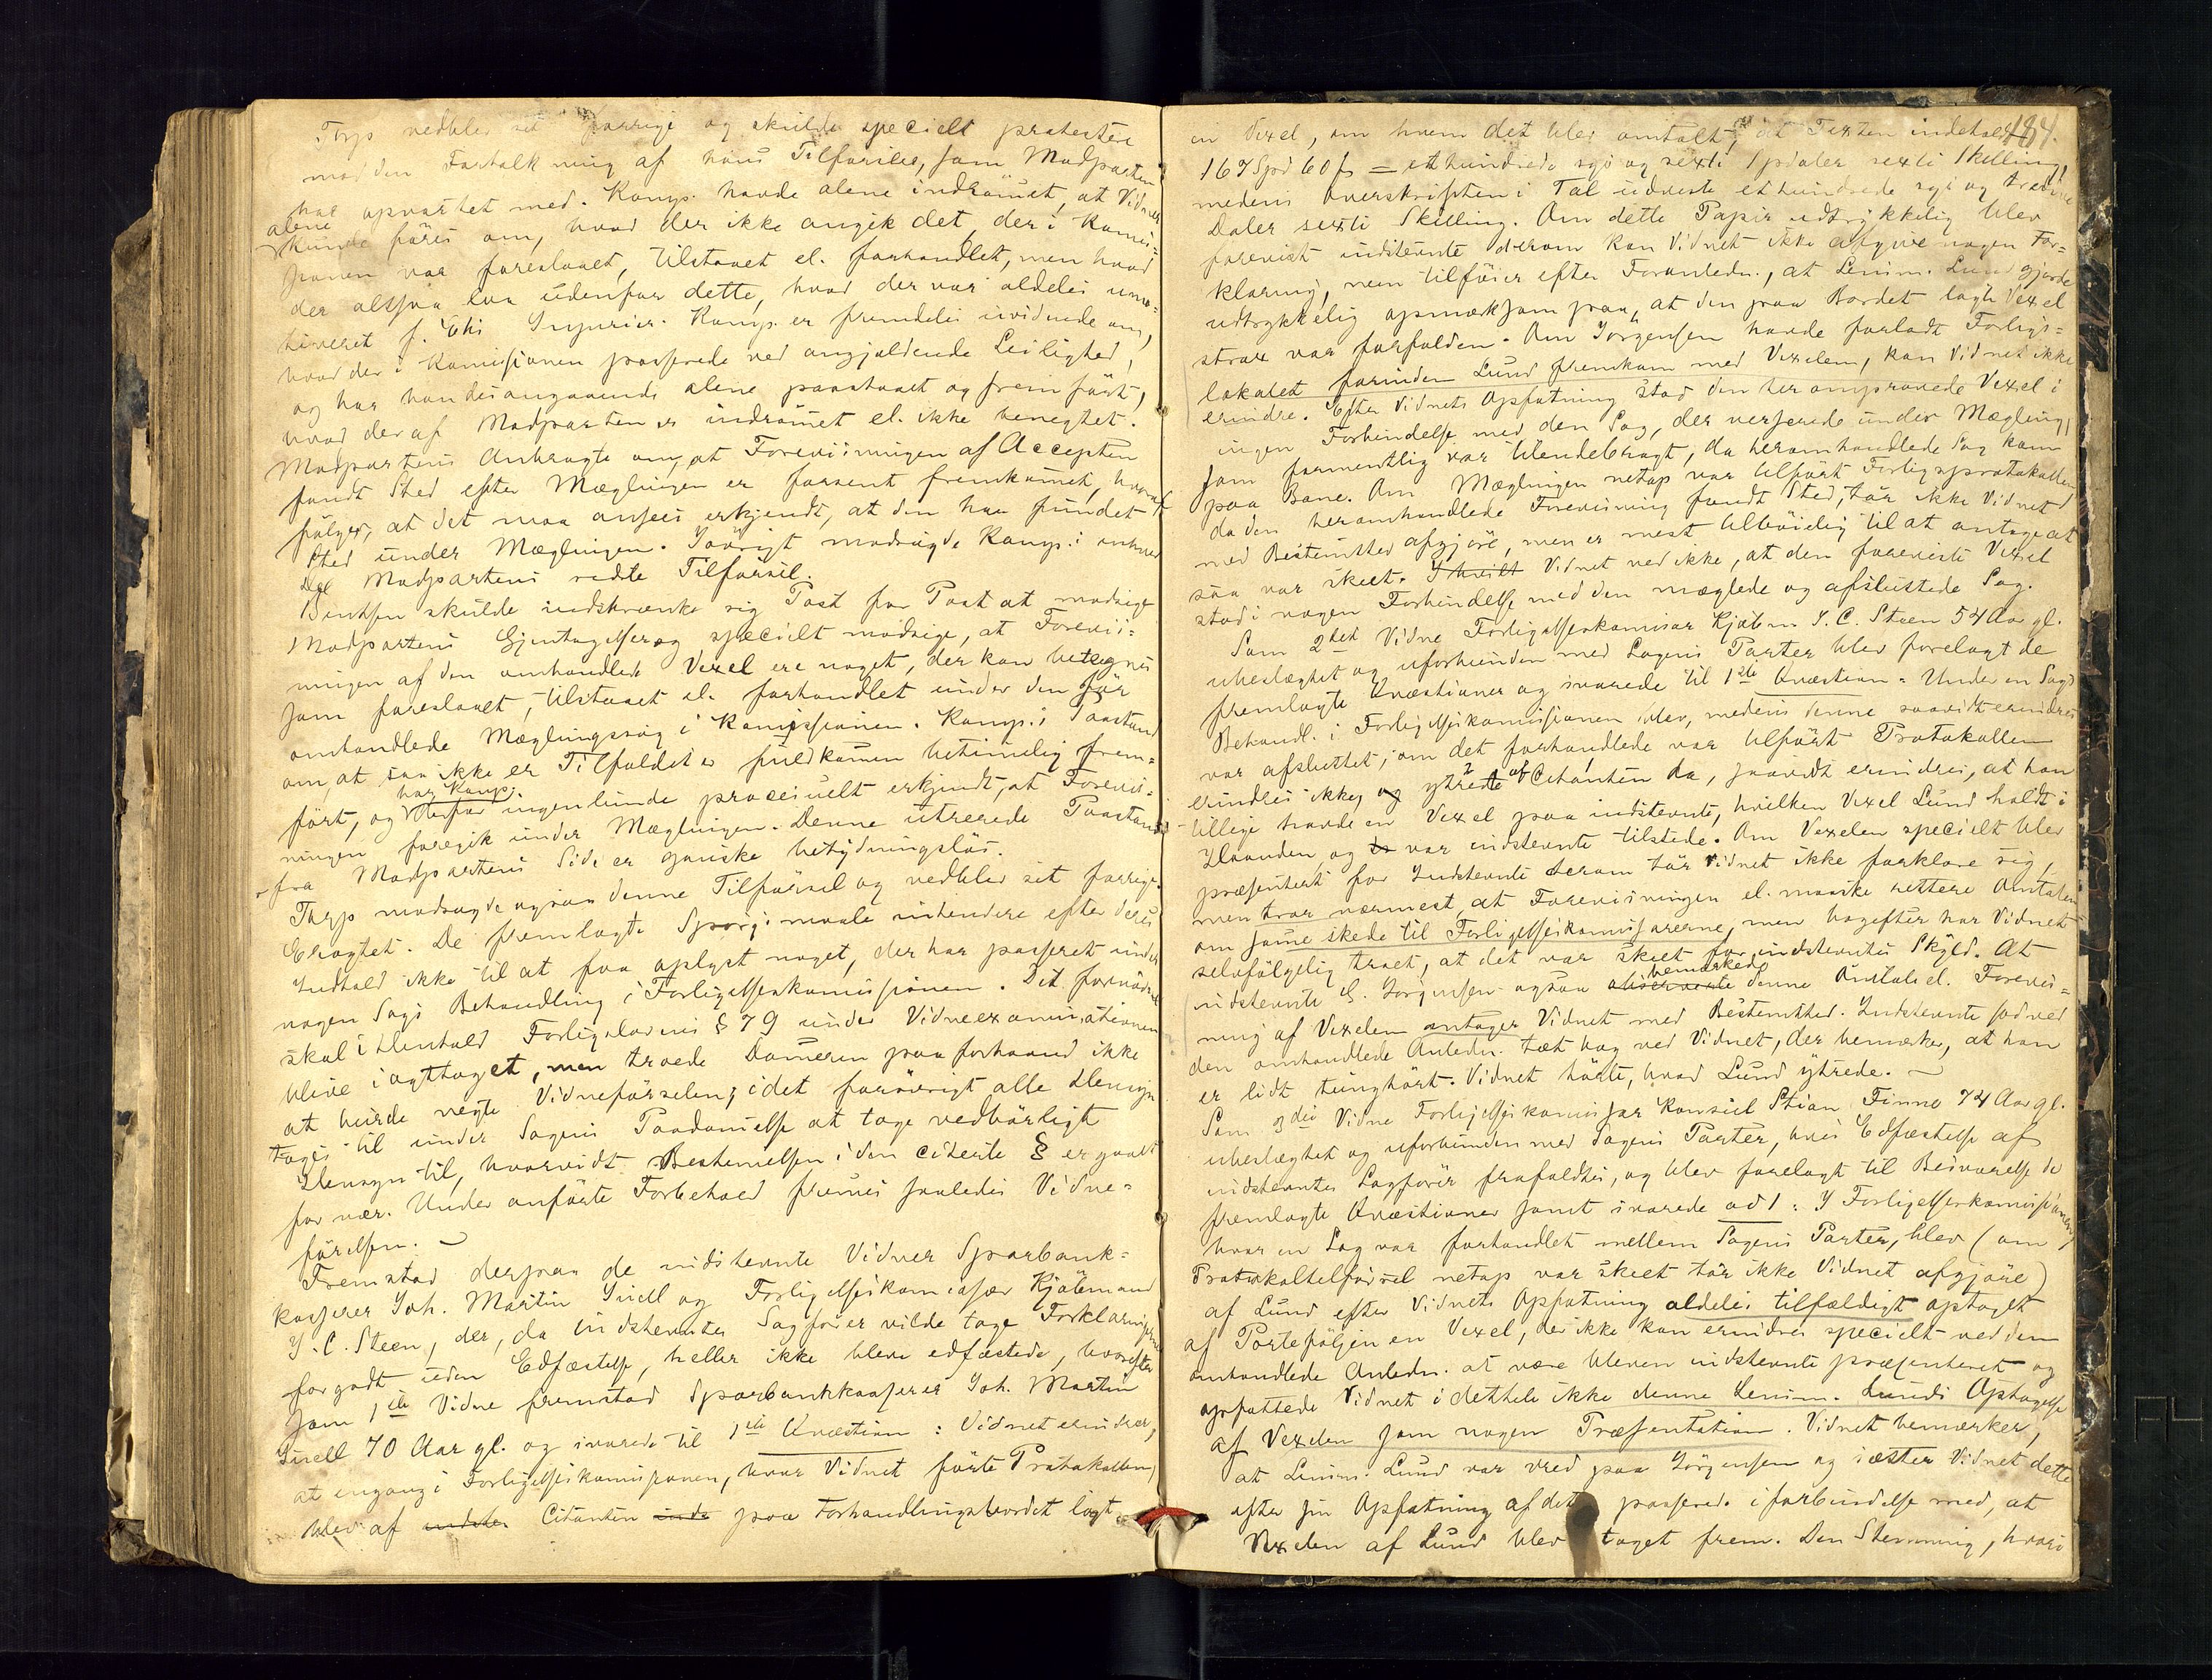 Torp vedblev sit forrige og skulde specielt protestere
mod den Fortolkning af hans Tilførsler, som Modparten
har opvartet med. Komp. havde alene indrömet, at Vidner
alene
kunde föres om, hvad der ikke angik det, der i Komis-
sionen var foreslaaet, tilstaaet el. forhandlet, men hvad
der altsaa laa udenfor dette, hvad der var aldeles umo-
tiveret f. Ex. Injurier. Komp. er fremdeles uvidende om,
hvad der i Komissionen passerede ved angjældende Leilighed,
og har han desangaaende alene paastaaet og fremført,
hvad der af Modparten er indrömet el. ikke benegtet.
Modpartens Anbragte om, at Forevisningen af Accepten
fandt Sted efter Mæglingen er forsent fremkomet, hvoraf
følger, at det maa ansees erkjendt, at den har fundet
Sted under Mæglingen. Iøvrigt modsagde Komp. i enhver
Del Modpartens sidste Tilførsel.
Bentsen skulde indskrænke sig Post for Post at modsige
Modpartens Gjentagelser og specielt modsige, at Forevis-
ningen af den omhandlede Vexel er noget, der kan betegnes
som foreslaaet, tilstaaet el. forhandlet under den før
omhandlede Mæglingssag i Komissionen. Komp.s Paastand
om, at saa ikke er Tilfældet er fuldkomen betimelig frem-
ført, og har Komp. derfor ingenlunde processuelt erkjendt, at Forevis-
ningen foregik under Mæglingen. Denne utrerede Paastand
fra Modpartens Side er ganske betydningsløs.
Torp modsagde ogsaa denne Tilførsel og vedblev sit forrige.
Eragtet. De fremlagte Spørgsmaale intendere efter deres
Indhold ikke til at faa oplyst noget, der har passeret under
nogen Sags Behandling i Forligelseskomissionen. Det fornødne
skal i Henhold Forligslovens § 79 under Vidneexaminationen
blive iagttaget, men troede Domeren paa forhaand ikke
at burde negte Vidneførselen; idet forøvrigt alle Hensyn
tages til under Sagens Paadømelse at tage vedbørligt
Hensyn til, hvorvidt Bestemelsen i den citerte § er gaaet
for nær. Under anførte Forbehold fremes saaledes Vidne-
førelsen. —
Fremstod derpaa de indstevnte Vidner Sparbank-
kasserer Joh. Martin Snell og Forligelseskomissær Kjøbmand
J. C. Steen, der, da indstevntes Sagfører vilde tage Forklaringerne
for godt uden Edfæstelse, heller ikke bleve edfæstede, hvorefter
som 1ste Vidne fremstod Sparbankkasserer Joh. Martin
Snell 70 Aar gl. og svarede til 1ste Qvæstion: Vidnet erindrer,
at engang i Forligelseskomissionen, hvor Vidnet førte Protokollen,
blev af Citanten paa Forhandlingsbordet lagt
184.
en Vexel, om hvem det blev omtalt, at Texten indeholdt
167 Spd 60 ß = ethundrede syv og sexti Spdaler sexti Skilling,
medens Overskriften i Tal udviste ethundrede syv og tredive
Daler sexti Skilling. Om dette Papir udtrykkelig blev
forevist indstevnte derom kan Vidnet ikke afgive nogen For-
klaring, men tilføier efter Foranledn., at Lensm. Lund gjorde
udtrykkelig opmærksom paa, at den paa Bordet lagte Vexel
strax var forfalden. Om Jørgensen havde forladt Forligs-
lokalet forinden Lund fremkom med Vexelen, kan Vidnet ikke
erindre. Efter Vidnets Opfatning stod den her omprovede Vexel i
ingen Forbindelse med den Sag, der verserede under Mægling,
som formentlig var tilendebragt, da heromhandlede Sag kom
paa Bane. Om Mæglingen netop var tilført Forligsprotokollen
da den heromhandlede Forevisning fandt Sted, tør ikke Vidnet
med Bestemthed afgjøre, men er mest tilbøielig til at antage at
saa var skeet. Vidnet ved ikke, at den foreviste Vexel
stod i nogen Forbindelse med den mæglede og afsluttede Sag.
Som 2det Vidne Forligelseskomissær Kjøbm. J. C. Steen 54 Aar gl.
ubeslægtet og uforbunden med Sagens Parter blev forelagt de
fremlagte Qvæstioner og svarede til 1ste Qvæstion: Under en Sags
Behandl. i Forligelseskomissionen blev, medens denne saavidt erindres
var afsluttet, om det forhandlede var tilført Protokollen
erindres ikke, ytrede af Citanten da, saavidt erindres, at han
tillige havde en Vexel paa indstevnte, hvilken Vexel Lund holdt i
Haanden, og var indstevnte tilstede. Om Vexelen specielt blev
præsentert for Indstevnte derom tør Vidnet ikke forklare sig,
men tror nærmest, at Forevisningen el. maaske rettere Omtalen
om same skede til Forligelseskomissærerne, men bagefter har Vidnet
selvfølgelig troet, at det var skeet for indstevntes Skyld. At
indstevnte E. Jørgensen ogsaa bemærkede denne Omtale el. Forevis-
ning af Vexelen antager Vidnet med Bestemthed. Indstevnte sad ved
den omhandlede Anledn. tæt bag ved Vidnet, der bemærker, at han
er lidt tunghørt. Vidnet hørte, hvad Lund ytrede. —
Som 3die Vidne Forligelseskomissær Konsul Stian Finne 74 Aar gl.
ubeslægtet og uforbunden med Sagens Parter, hvis Edfæstelse af
indstevntes Sagfører frafaldtes, og blev forelagt til Besvarelse de
fremlagte Qvæstioner samt svarede ad 1: I Forligelseskomissionen,
hvor en Sag var forhandlet mellem Sagens Parter, blev (om
Protokoltilførsel netop var skeet tør ikke Vidnet afgjøre)
af Lund efter Vidnets Opfatning aldeles tilfældigt optaget
af Porteføljen en Vexel, der ikke kan erindres specielt ved den
omhandlede Anledn. at være bleven indstevnte præsenteret og
opfattede Vidnet i dethele ikke denne Lensm. Lunds Optagelse
af Vexelen som nogen Præsentation. Vidnet bemærker,
at Lensm. Lund var vred paa Jørgensen og sætter Vidnet dette
efter sin Opfatning af det passerede i forbindelse med, at
Vexelen af Lund blev taget frem. Den Stemning, hvori